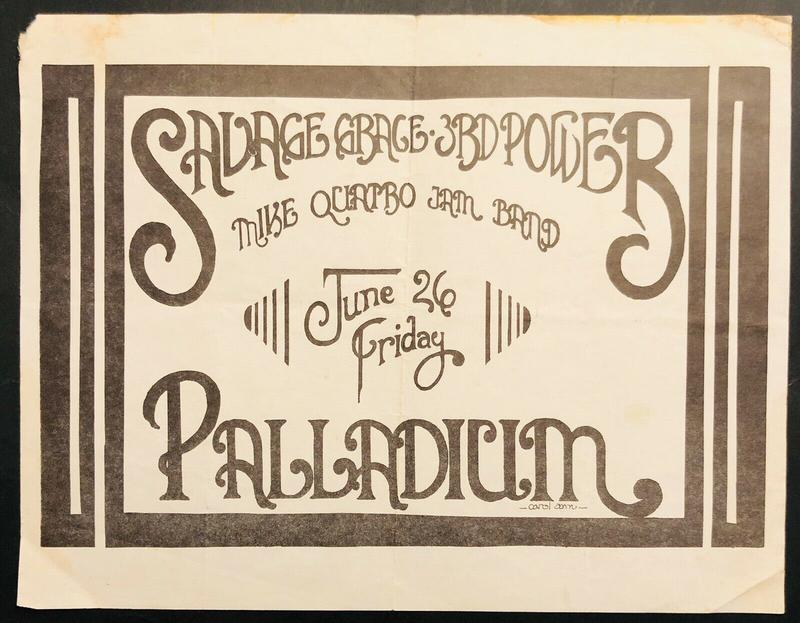 SAVAGE GRACE · 3RD POWER
MIKE QUATRO JAM BAND
June 26
Friday
PALLADIUM
—carol ann—